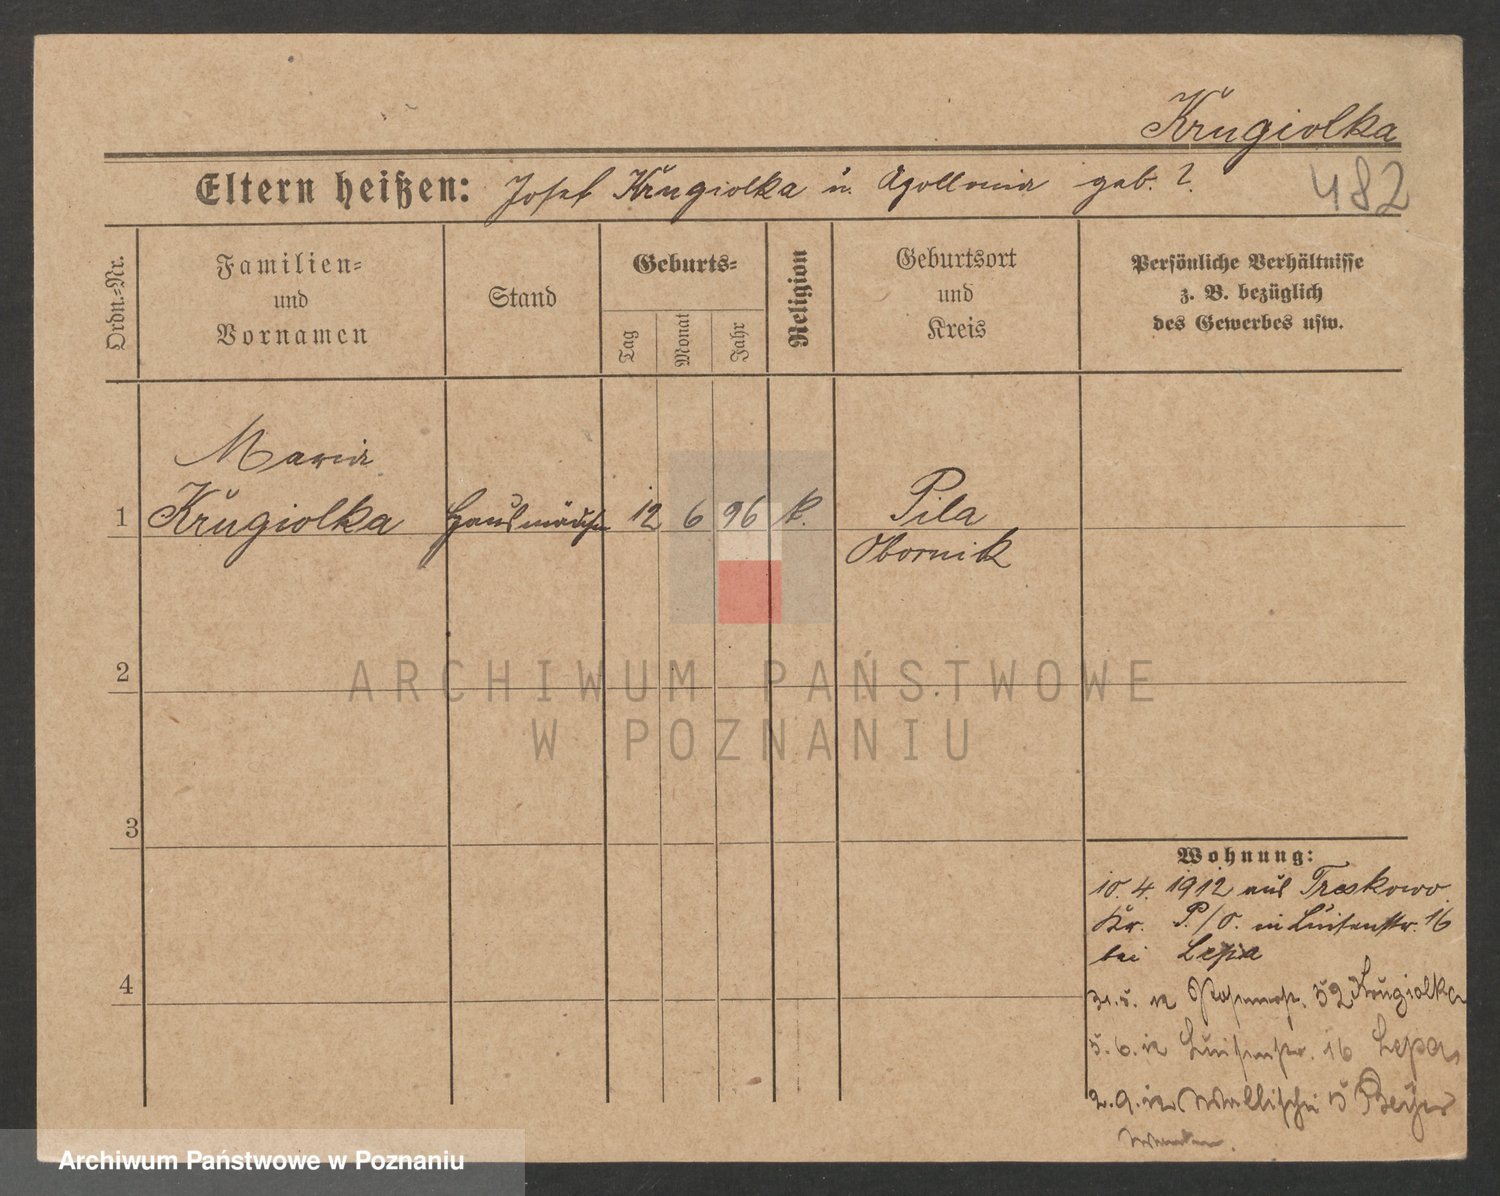 Krugiolka
482
Eltern heißen: Josef Krugiolka u. Apollonia geb. ?
Ordn.-Nr.
Familien-
und
Vornamen
Stand
Geburts-
Tag
Monat
Jahr
Religion
Geburtsort
und
Kreis
Persönliche Verhältnisse
z. B. bezüglich
des Gewerbes usw.
Maria
1 Krugiolka Hausmädchen 12 6 96 k. Pila
Obornik
2
3
4
Wohnung:
10. 4. 1912 aus Treskowo
Kr. P./O. in Luisenstr. 16
bei Lepa
31.5. 12 52 Krugiolka
5.6.12 Luisenstr. 16 Lepa
2.9.12 Wallischei 5 Beyer
ARCHIWUM PAŃSTWOWE
W POZNANIU
Archiwum Państwowe w Poznaniu